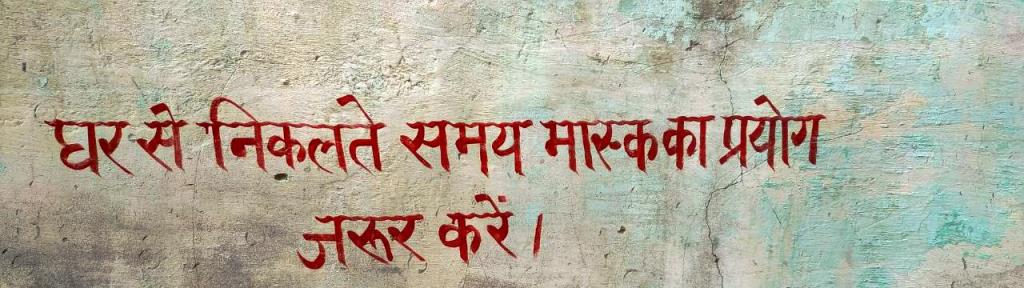 घर से निकलते समय मास्क का प्रयोग
जरूर करें।